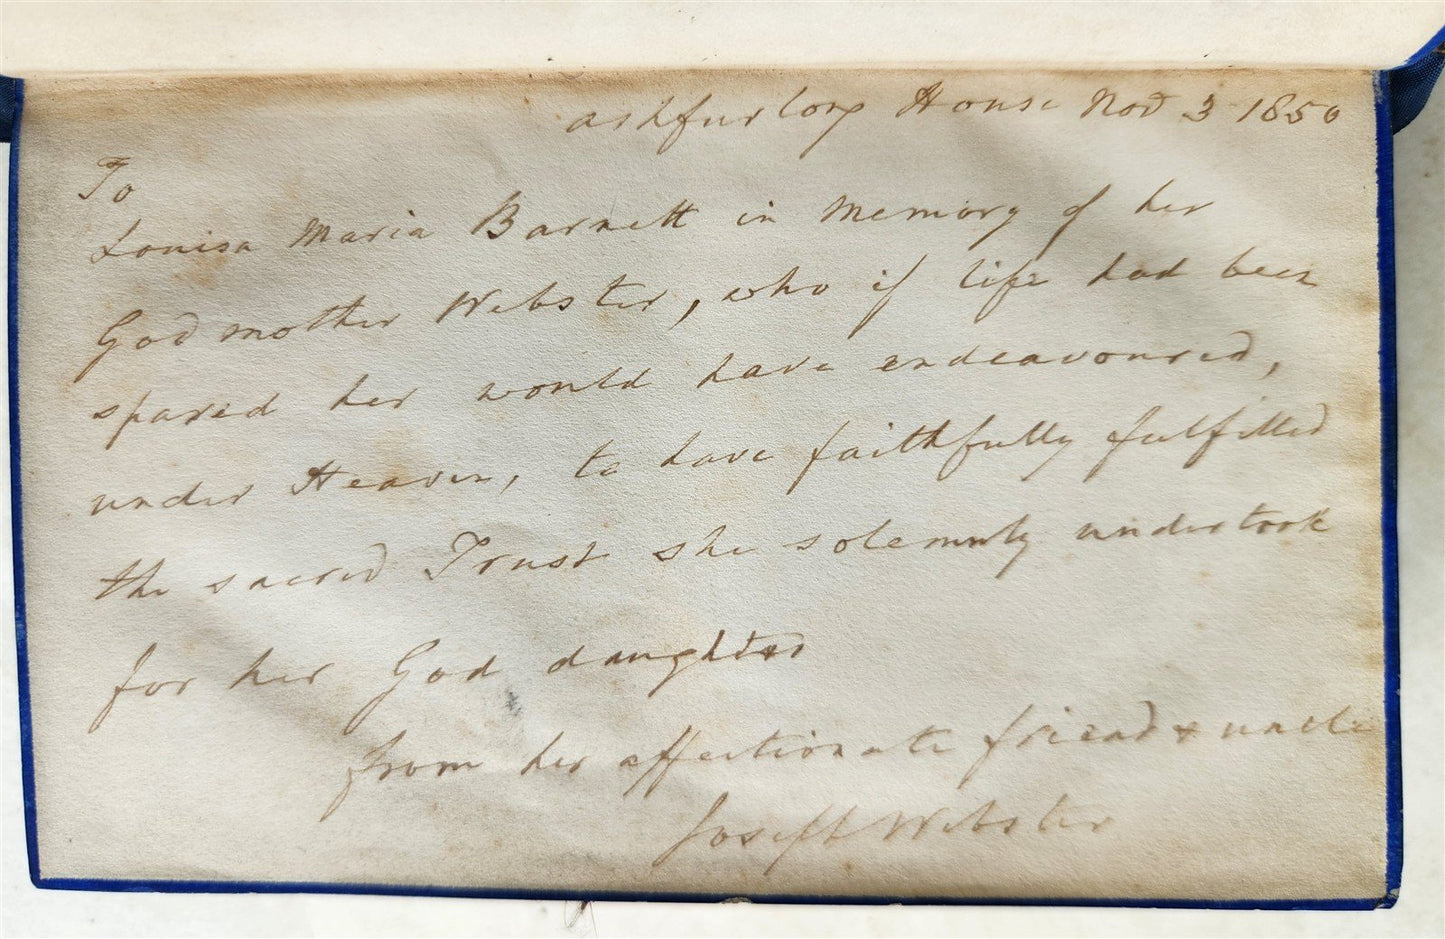 Ashfurlong House Nov 3 1850
To
Louisa Maria Barnett in Memory of her
God mother Webster, who if life had been
spared her would have endeavoured,
under Heaven, to have faithfully fulfilled
the sacred Trust she solemnly undertook
for her God daughter
from her affectionate friend & uncle
Joseph Webster